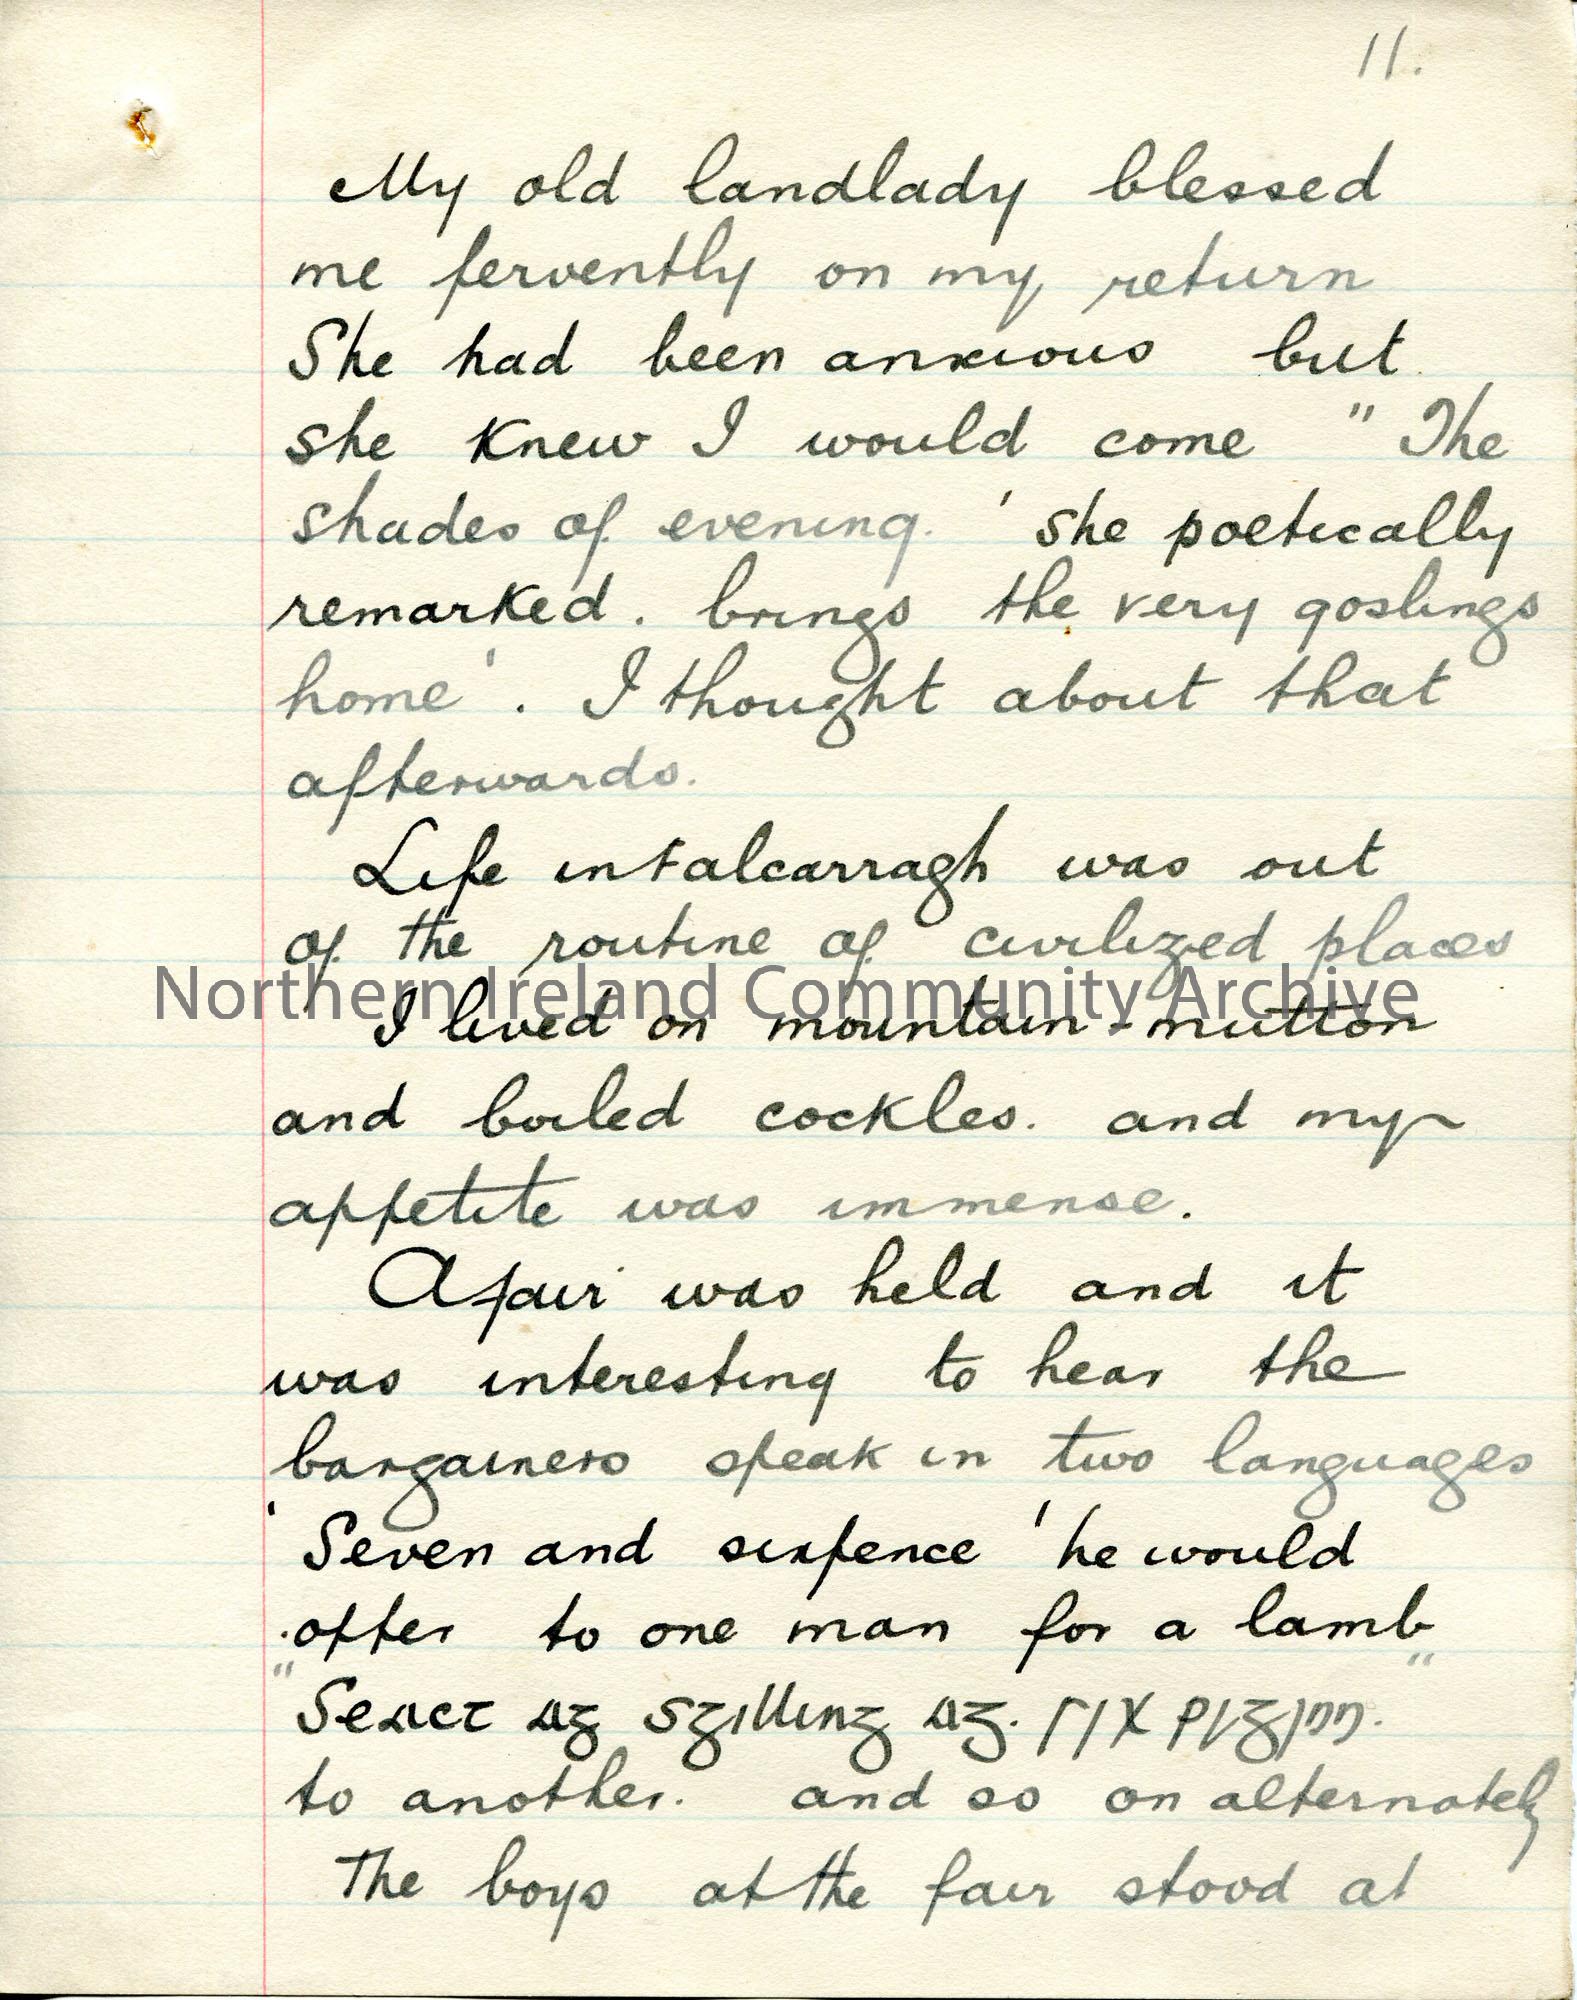 11.
My old landlady blessed
me fervently on my return
She had been anxious but
she knew I would come " The
shades of evening. ' she poetically
remarked. brings the very goslings
home '. I thought about that
afterwards.
Life in Falcarragh was out
of the routine of civilized places
Northern Ireland Community Archive
I lived on mountain-mutton
and boiled cockles. and my
appetite was immense.
A fair was held and it
was interesting to hear the
bargainers speak in two languages
' Seven and sixpence ' he would
offer to one man for a lamb
to another. and so on alternately
The boys at the fair stood at